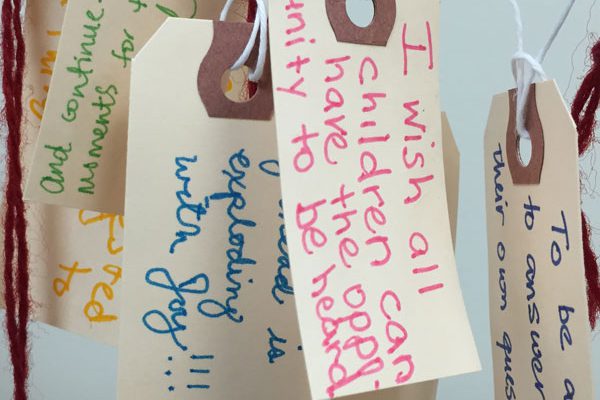 and continue
for
to
is
exploding
with joy!!!
I wish all
children can
have the
unity to be heard
To be a
to answer
their own ques